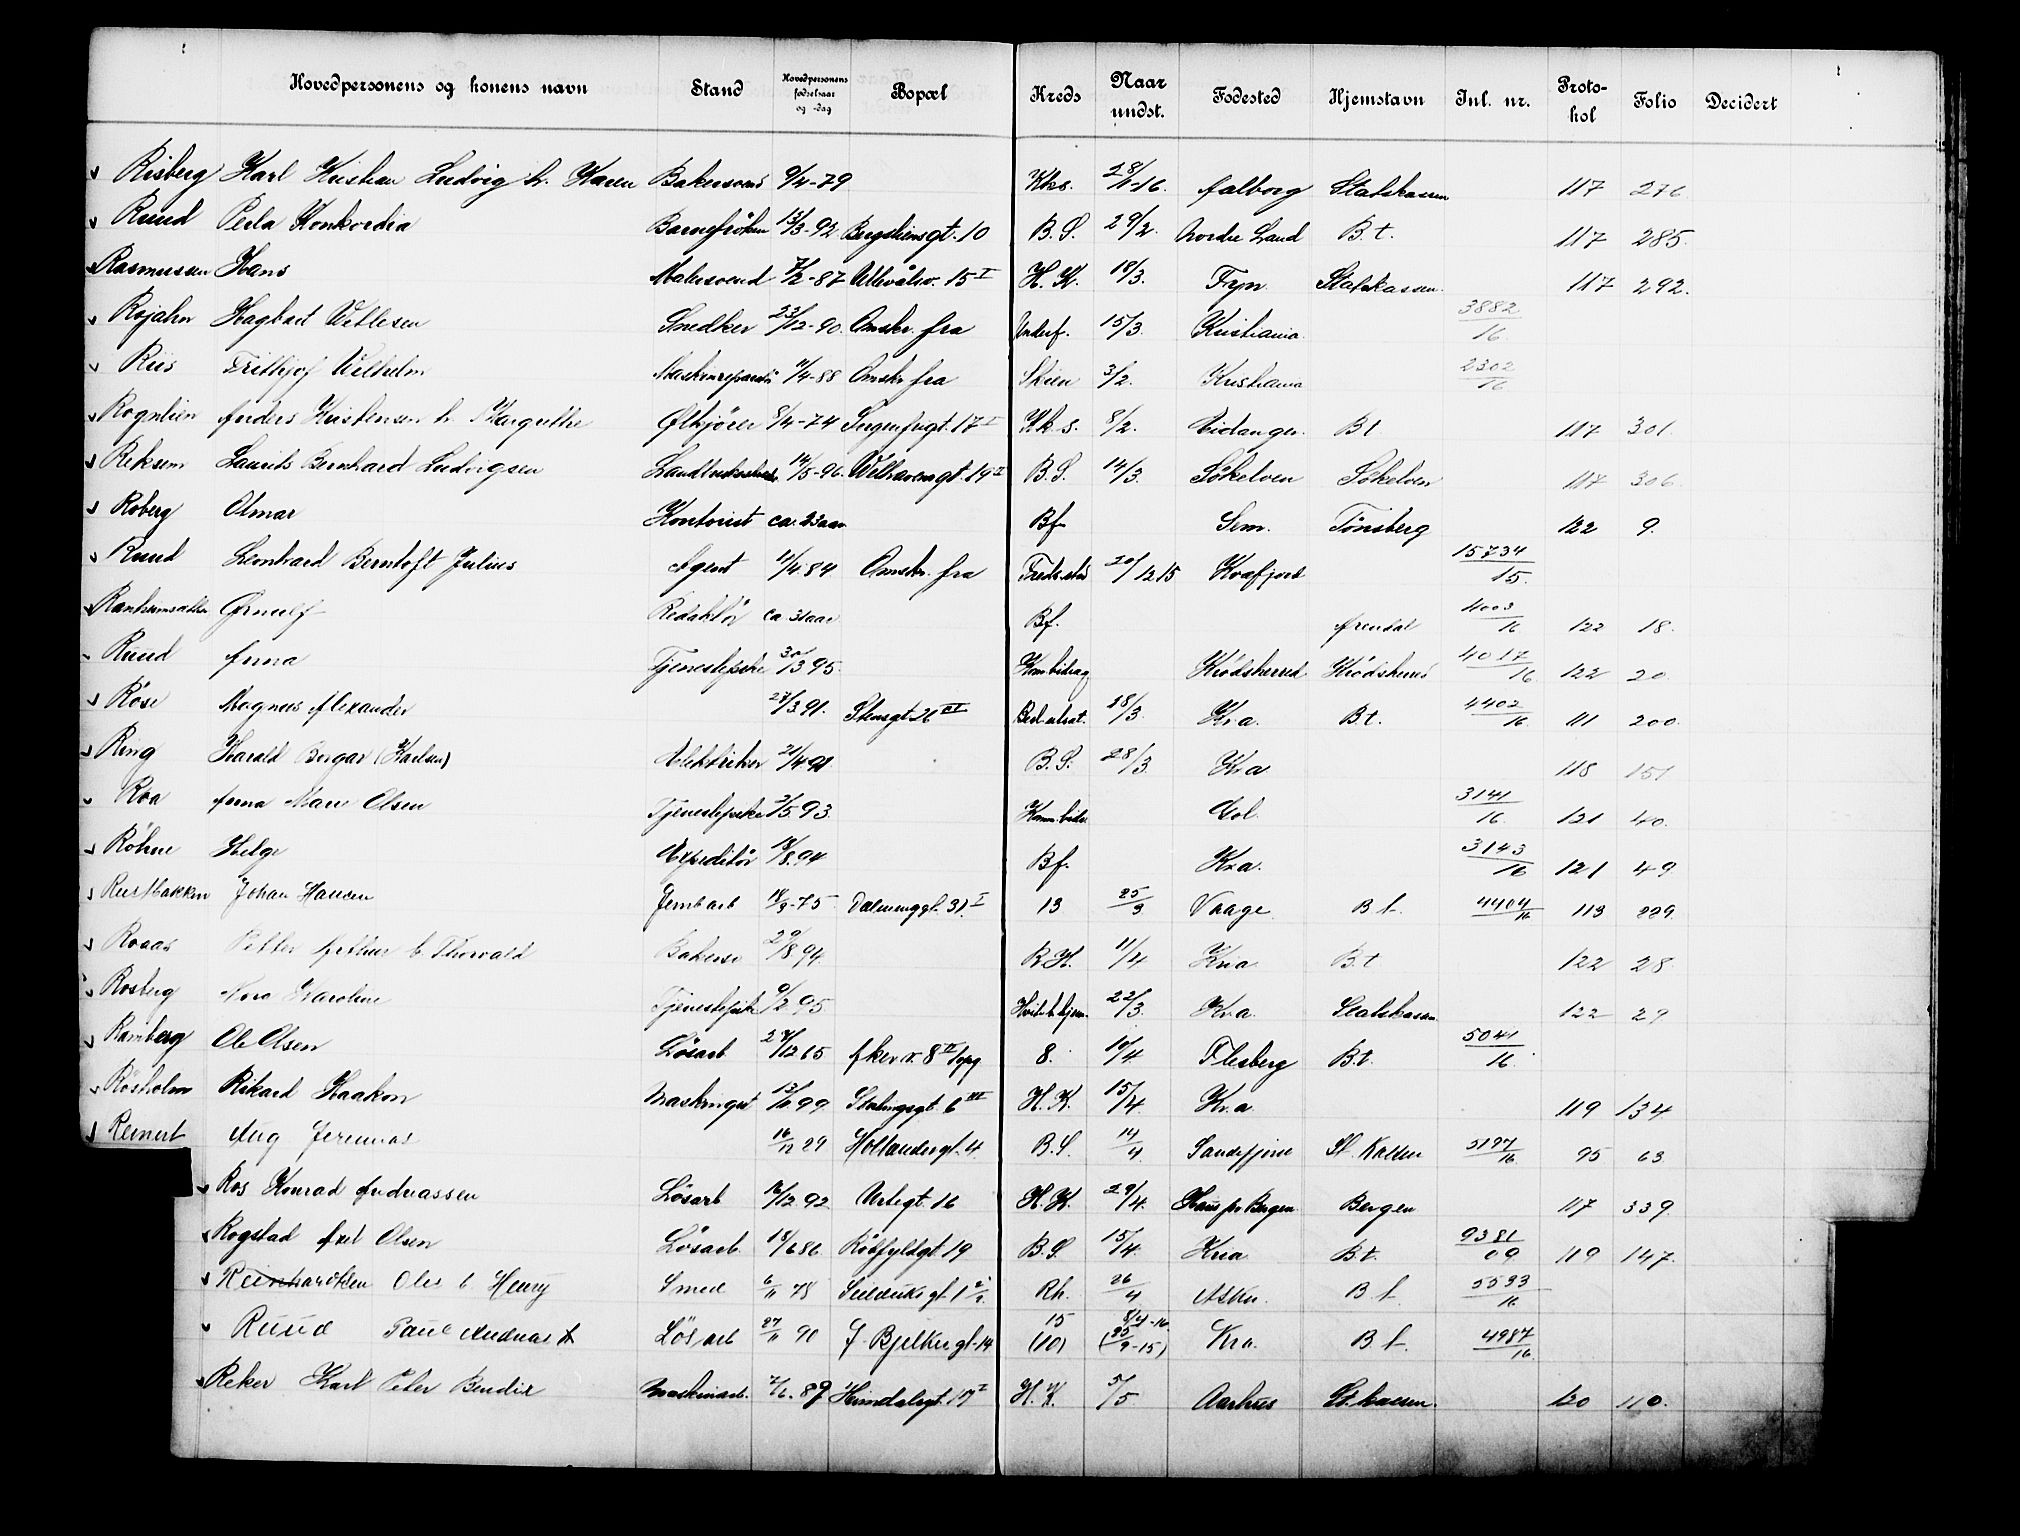 Hovedpersonens og konens navn | Stand | Hovedpersonens fødselsaar og -dag | Bopæl | Kreds | Naar undst. | Fødested | Hjemstavn | Inl. nr. | Protokol | Folio | Decidert
Risberg Karl Kristian Ludvig h. Karen | Bakersvend | 9/4-79 | | Khs. | 28/1-16. | Aalborg | Statskassen | | 117 | 276.
Ruud Perla Konkordia | Barnefrøken | 13/3-92 | Bergstiensgt. 10 | B.S. | 29/2. | Nordre Land | B.t. | | 117 | 285.
Rasmussen Hans | Malersvend | 7/2-87 | Ullevålsv. 15 I | H.K. | 18/3. | Fyn. | Statskassen. | | 117 | 292.
Rojahn Hagbart Vetlesen | Snedker | 23/12-90. | Omskr. fra | Undersf. | 15/3. | Kristiania. | | 3882/16
Riis Frithjof Wilhelm | Maskinreparatør | /4-88 | Omskr. fra | Skien | 3/2. | Kristiania | | 2302/16
Rognlien Anders Kristensen h. Margrethe | Ølkjører | 8/4-74 | Seigenfugt. 17 I | K.k.s. | 8/2. | Eidanger. | Bt | | 117 | 301.
Reksem Laurits Bernhard Ludvigsen | | 14/5-96. | Welhavensgt. 14 II | B.S. | 14/3. | Søkelven | Søkelven | | 117 | 306.
Roberg Olmar | Kontorist | ca. 23 aar | | Bf. | | Sem. | Tønsberg | | 122 | 9.
Ruud Leonhard Berntoft Julius | Agent | 11/4 84 | Omskr. fra | Fredr.stad | 20/12 15 | Kvæfjord | | 15734/15.
Ranheimsæter Ørnulf | Redaktør | ca. 31 aar | | Bf. | | | Arendal | 4003/16 | 122 | 18.
Ruud Anna | Tjenestepike | 30/3 95. | | Kom.bidrag | | Krødsherred | Krødsherred | 4017/16 | 122 | 20.
Röse Magnus Alexander | | 27/3 91. | Stensgt. 26 III | | 28/3. | Kra. | Bt. | 4402/16. | 111 | 200.
Ring Harald Birger (Karlsen) | Elektriker | 21/4 91 | | B.S. | 28/3. | Kra | | | 118 | 151
Roa Anna Marie Olsen | Tjenestepike | 3/5 93. | | Kom.bidr. | | Gol. | | 3141/16. | 121 | 40.
Röhne Helge | Expeditør | 18/8. 94 | | Bf. | | Kra. | | 3143/16 | 121 | 49
Rustbakken Johan Hansen | Jernarb | 18/3-75 | Dælenenggt. 31. I | 13 | 25/3 | Vaage. | B.t. | 4404/16 | 113 | 229.
Roaas Petter Arthur b. Thorvald | Bakersv | 29/8 94. | | R.H. | 11/4 | Kria | B.t | | 122 | 28.
Rosberg Nora Karoline | Tjenestepike | 9/2 95 | | Hvit.b.hjem. | 22/3. | Kr.a. | Statskassen | | 122 | 29
Ramberg Ole Olsen | Løsarb | 27/12 65 | Akersv. 8 II opg | 8. | 10/4. | Flesberg | B.t. | 5041/16.
Rosholm Rikard Haakon | Maskingut | 13/11 99 | Storlingsgt. 6 III | H.K. | 15/4. | Kr.a | | | 119 | 134
Reinert Aug Jeremias | | 16/12 29 | Hollandergt. 4 | B.S | 14/4. | Sandefjord | St. Kassen | 5197/16. | 95 | 63
Ros Konrad Andreassen | Løsarb | 16/12 92 | Urtegt. 16 | H.K. | 29/4. | Haus pr Bergen | Bergen | | 117 | 339.
Rogstad Axel Olsen | Løsarb. | 18/6 86 | Rödfyldgt 19 | B.S. | 15/4. | Kria | B.t. | 9381/09 | 119 | 147.
Reinhardtsen Oles b. Henry | Smed | 6/11 78 | Seilduksgt. 1 | Rh. | 26/4 | Asker. | B.t. | 5593/16
Ruud Paul Andreas | Løsarb | 27/11 90 | J. Bjelkes gt. 14 | 15 (10) | 8/4-16. (25/9-15) | Kra. | B.t. | 4987/16.
Reker Karl Peter Bendix | Maskinarb. | 7/6. 89 | Heimdalsgt. 17 I | H.K. | 5/5 | Aarhus | St.kassen. | | 120 | 110.